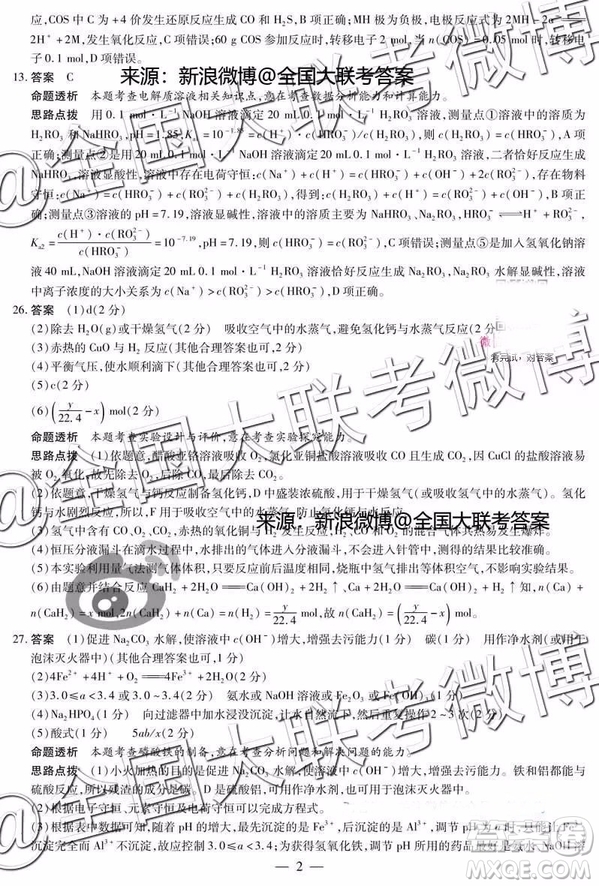 应,COS中C为+4价发生还原反应生成CO和H₂S,B项正确;MH极为负极,电极反应式为2MH-2e⁻
2H⁺+2M,发生氧化反应,C项错误;60 g COS参加反应时,转移电子2 mol,当n(COS)=0.05 mol时,转移电子
0.1 mol,D项错误。
13.答案 C
来源:新浪微博@全国大联考答案
命题透析 本题考查电解质溶液相关知识点,意在考查数据分析能力和计算能力。
思路点拨 用0.1 mol·L⁻¹ NaOH溶液滴定20 mL 0.1 mol·L⁻¹ H₂RO₃溶液,测量点①溶液中的溶质为
H₂RO₃和NaHRO₃,pH=1.85,
错误;测量点②是用0.1 mol·L⁻¹ NaOH溶液滴定20 mL 0.1 mol·L⁻¹ H₂RO₃溶液,二者恰好反应生成
NaHRO₃溶液,溶液显酸性,溶液中存在电荷守恒:c(Na⁺)+c(H⁺)=c(HRO₃⁻)+2c(RO₃²⁻)+c(OH⁻),存在物料
守恒:c(Na⁺)=c(HRO₃⁻)+c(RO₃²⁻)+c(H₂RO₃),得到:c(H₂RO₃)+c(H⁺)=c(RO₃²⁻)+c(OH⁻),B项错
误;测量点③溶液的pH=7.19,溶液显碱性,溶液中的溶质主要为NaHRO₃、Na₂RO₃,HRO₃⁻⇌H⁺+RO₃²⁻,
Kₐ₂=c(H⁺)·c(RO₃²⁻)/c(HRO₃⁻)=10⁻⁷·¹⁹,则c(HRO₃⁻)=c(RO₃²⁻),C项正确;测量点⑤是加入氢氧化钠溶
液40 mL,NaOH溶液滴定20 mL 0.1 mol·L⁻¹ H₂RO₃溶液恰好反应生成Na₂RO₃,Na₂RO₃水解显碱性,溶液
中离子浓度的大小关系为c(Na⁺)>c(RO₃²⁻)>c(OH⁻)>c(HRO₃⁻),D项错误。
26.答案 (1)d(2分)
(2)除去H₂O(g)或干燥氢气(2分) 吸收空气中的水蒸气,避免氢化钙与水蒸气反应(2分)
(3)赤热的CuO与H₂反应(其他合理答案也可)(2分)
考完试,对答案
(4)平衡气压,使水顺利滴下(其他合理答案也可)(2分)
(5)c(2分)
(6)(y/22.4-x) mol(2分)
命题透析 本题考查实验设计与评价,意在考查实验探究能力。
思路点拨 (1)依题意,醋酸亚铬溶液吸收O₂,氯化亚铜盐酸溶液吸收CO且生成CO₂。因CuCl的盐酸溶液易
被O₂氧化,故先除去O₂,后除去CO,最后除去CO₂。
(2)依题意,干燥氢气与钙反应制备氢化钙,D中盛装浓硫酸,用于干燥氢气(或吸收氢气中的水蒸气)。氢化
钙与水剧烈反应,所以,F用于吸收空气中的水蒸气,防止氢化钙与水反应。
来源:新浪微博@全国大联考答案
(3)氢气中含有CO、O₂、CO₂,赤热的氧化铜与H₂发生反应,
(4)恒压分液漏斗在滴水过程中,水排出的气体进入分液漏斗,不会进入针管中,测得的结果较准确。
(5)本实验利用量气法测气体体积,只要反应前后装置内温度相同,烧瓶中瓶气互换总体积不变,不影响实验结果。
(6)由题意并结合反应CaH₂+2H₂O═Ca(OH)₂+2H₂↑、Ca+2H₂O═Ca(OH)₂+H₂↑,n(Ca)
+n(CaH₂)=x mol,2n(CaH₂)+n(Ca)=n(H₂)=y/22.4 mol,故n(CaH₂)=(y/22.4-x) mol。
27.答案 (1)促进Na₂CO₃水解,使溶液中c(OH⁻)增大,增强去污能力(1分) 碳(1分) 用作净水剂(或用于
泡沫灭火器中)(其他合理答案也可)(1分)
(2)4Fe²⁺+4H⁺+O₂═4Fe³⁺+2H₂O(2分)
(3)3.0≤a<3.4或3.0~3.4(2分) 氨水或NaOH溶液或Fe₂O₃或Fe(OH)₃(2分)
(4)Na₂HPO₄(1分) 向过滤器中加水浸没沉淀,让水自然流下,然后重复操作2~3次(2分)
(5)酸式(1分) 5ab/x(2分)
命题透析 本题考查磷酸铁的制备,意在考查分析问题和解决问题的能力。
思路点拨 (1)小火加热的目的是促进Na₂CO₃水解,使溶液中c(OH⁻)增大,增强去污能力。铁和铝都能与
硫酸反应,所以残渣的主要成分是碳。D是硫酸铝,可用作净水剂或用于泡沫灭火器中。
(2)根据电子守恒、元素守恒及电荷守恒可以完成方程式。
(3)根据表中数据可知,最先沉淀的是Fe³⁺,后沉淀的是Al³⁺,调节pH为
沉淀完全而Al³⁺不沉淀,所以可得到氢氧化铁沉淀,调节pH所用的药品
— 2 —
@全国大联考微博